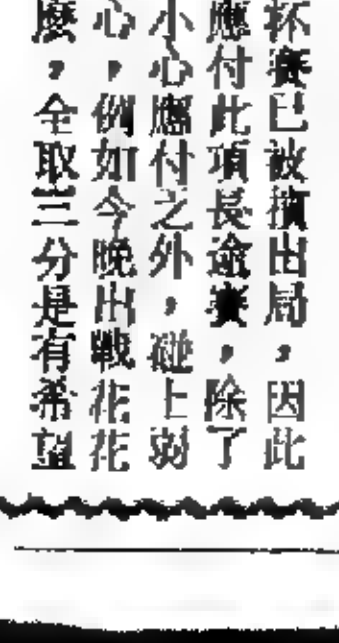 杯賽已被擯出局，因此
應付此項長途賽，除了
小心應付之外，碰上弱
心，例如今晚出戰花花
麼，全取三分是有希望